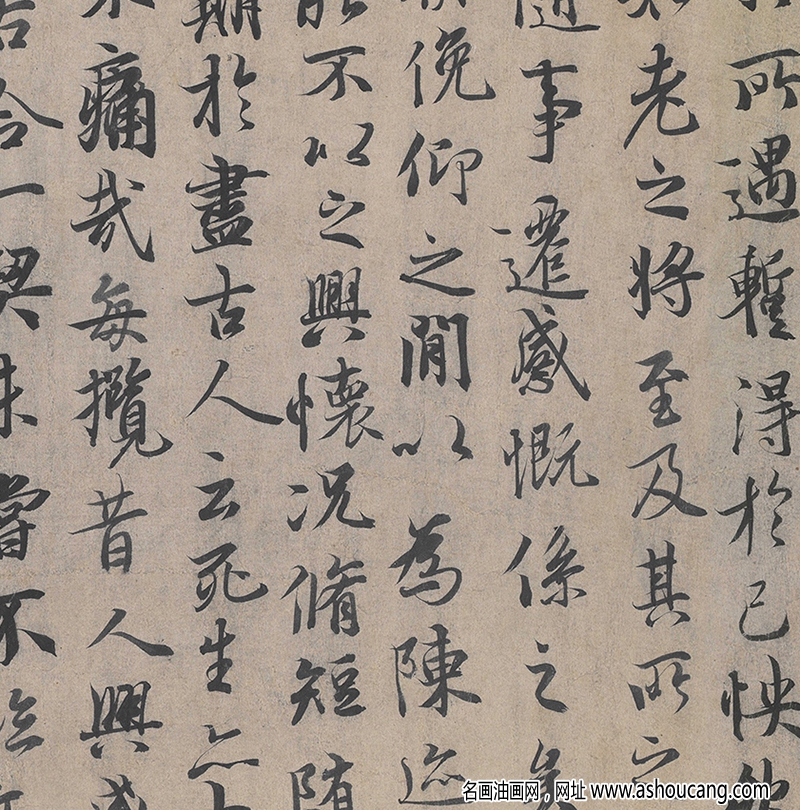 所遇暫得於己怏
老之將至及其所之
隨事遷感慨係之矣
俛仰之閒以為陳迹
能不以之興懷況脩短隨
期於盡古人云死生亦
痛哉每攬昔人興感
合一契未嘗不臨
名画油画网，网址 www.ashoucang.com